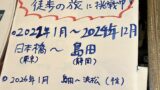 徒歩の旅に挑戦中!
○2022年1月~2024年12月
日本橋~島田
(東京) (静岡)
○2026年1月 島田~浜松(予定)